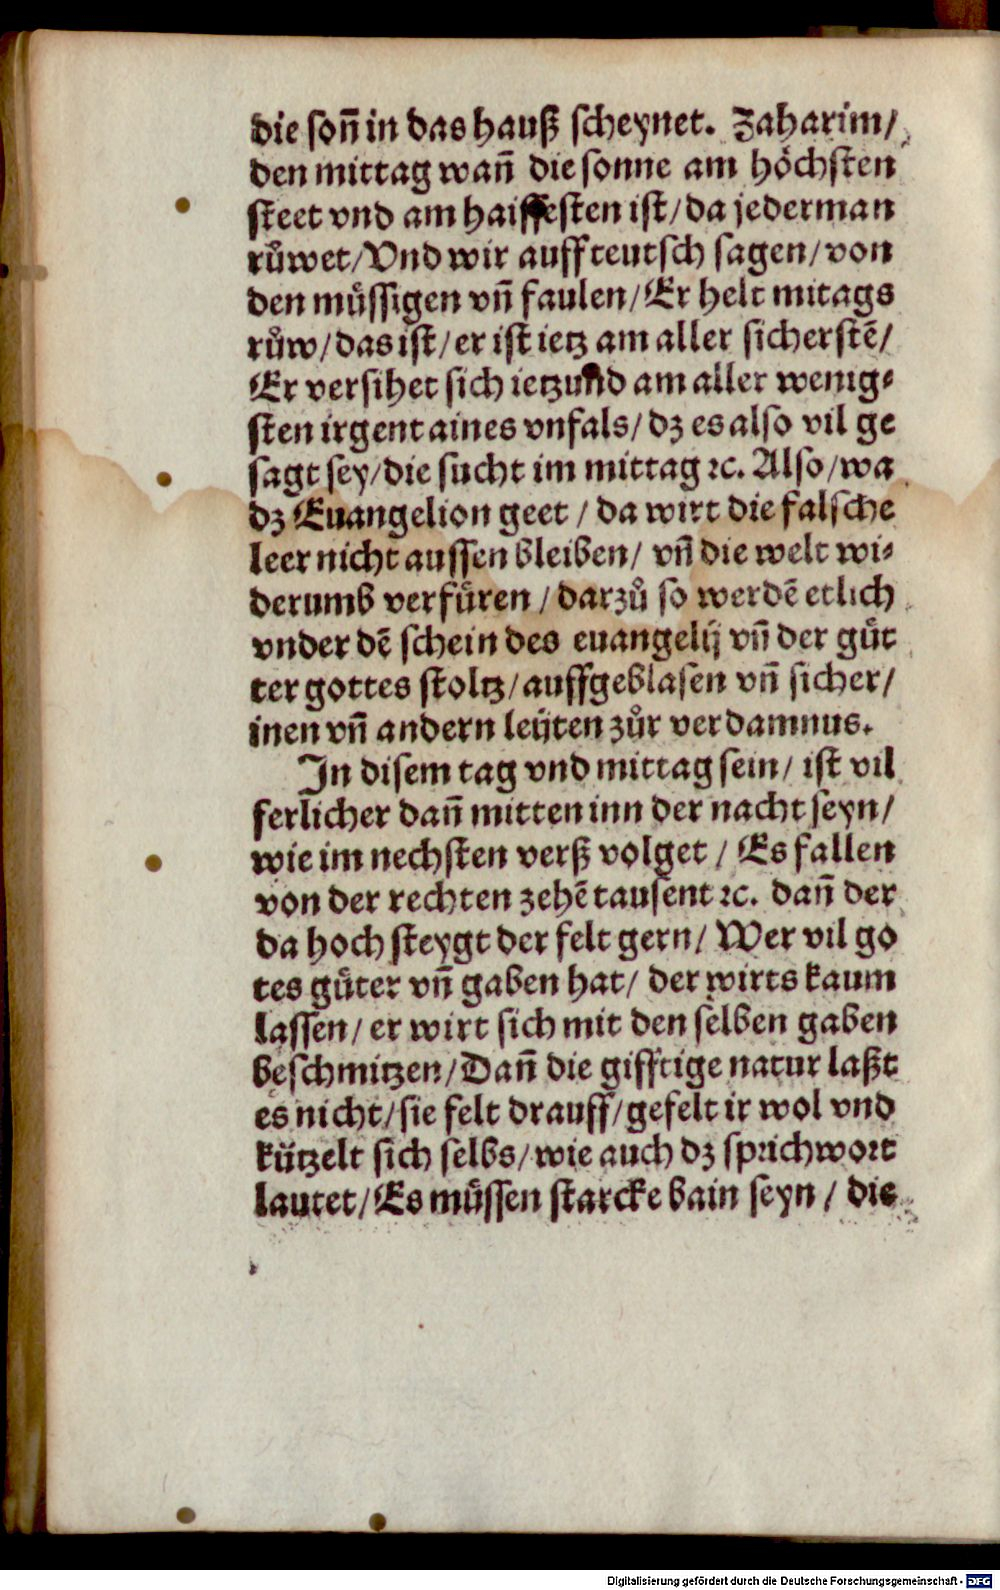 die soñ in das hauß scheynet. Zaharim/
den mittag wañ die sonne am höchsten
steet vnd am haissesten ist/da jederman
růwet/Vnd wir auff teutsch sagen/von
den müssigen vñ faulen/Er helt mitags
růw/das ist/er ist ietz am aller sicherstẽ/
Er versihet sich ietzund am aller wenig⸗
sten irgent aines vnfals/dz es also vil ge
sagt sey/die sucht im mittag ꝛc. Also/wa
dz Euangelion geet / da wirt die falsche
leer nicht aussen bleiben/ vñ die welt wi⸗
derumb verfüren / darzů so werdẽ etlich
vnder dẽ schein des euangelij vñ der güt
ter gottes stoltz/auffgeblasen vñ sicher/
inen vñ andern leÿten zůr verdamnus.
In disem tag vnd mittag sein/ ist vil
ferlicher dañ mitten inn der nacht seyn/
wie im nechsten verß volget / Es fallen
von der rechten zehẽ tausent ꝛc. dañ der
da hoch steygt der felt gern/ Wer vil go
tes güter vñ gaben hat/ der wirts kaum
lassen/ er wirt sich mit den selben gaben
beschmitzen/Dañ die gifftige natur laßt
es nicht/sie felt drauff/gefelt ir wol vnd
kützelt sich selbs/wie auch dz sprichwort
lautet/Es müssen starcke bain seyn / die
Digitalisierung gefördert durch die Deutsche Forschungsgemeinschaft - DFG